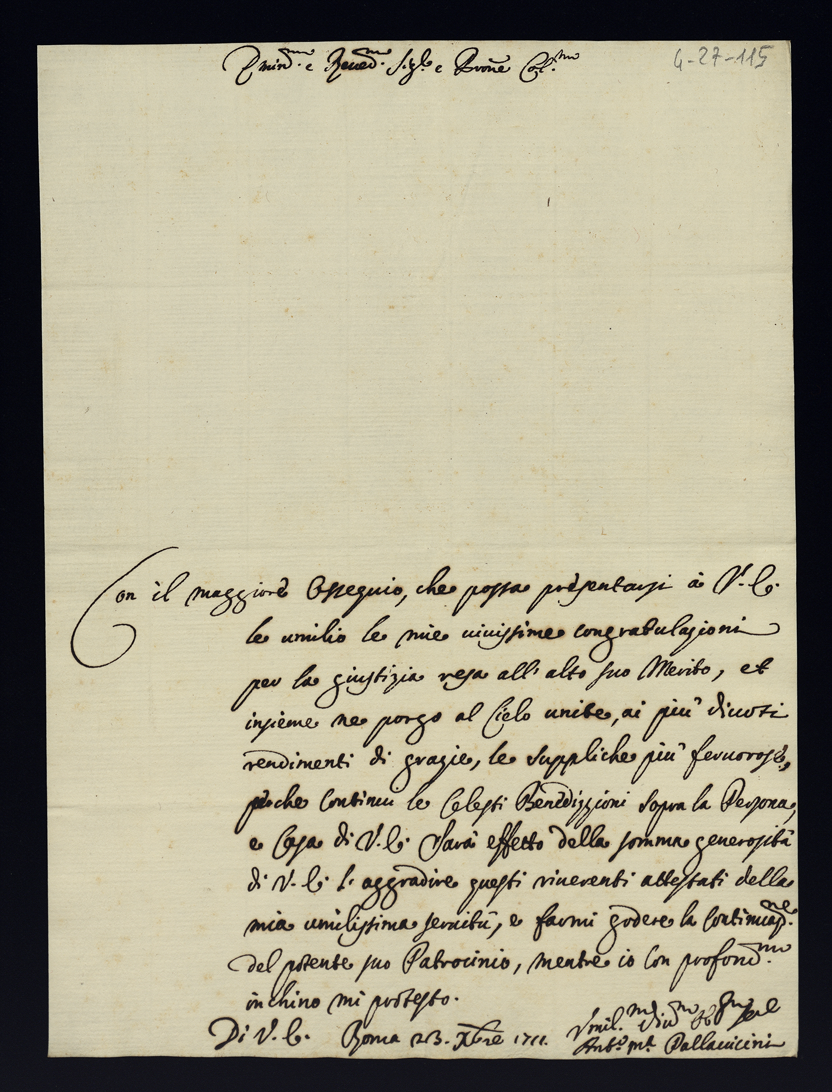 Emin.mo e Reued.mo Sig.r e Prone Col.mo
4-27-115
Con il maggiore Ossequio, che possa presentarsi à V. E.
le umilio le mie uiuissime congratulazioni
per la giustizia resa all'alto suo Merito, et
insieme ne porgo al Cielo unite, ai più diuoti
rendimenti di grazie, le suppliche più feruorose,
perche continui le Celesti Benedizzioni sopra la Persona,
e Casa di V. E. Sarà effetto della somma generosità
di V. E. l'aggradire questi riuerenti attestati della
mia umilissima seruitù, e farmi godere la continuaz.ne
del potente suo Patrocinio, mentre io con profond.mo
inchino mi protesto.
Di V. E. Roma 23. Xbre 1711.
Vmil.mo Diu.mo
Ant.o M.a Pallauicini